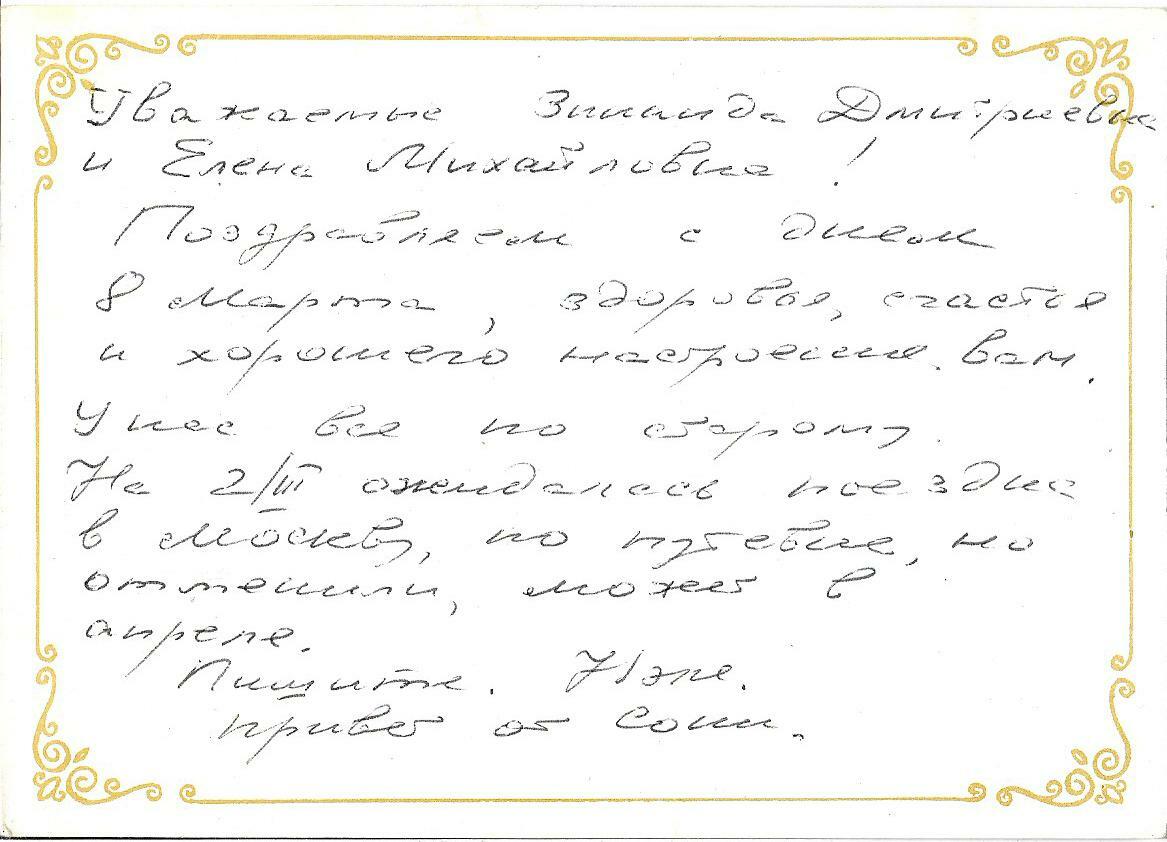 Уважаемые Зинаида Дмитриевна
и Елена Михайловна !
Поздравляем с днем
8 Марта, здоровья, счастья
и хорошего настроения вам.
У нас все по старому.
На 2/III ожидалась поездка
в Москву, по путевке, но
отменили, может в
апреле.
Пишите.
Привет от Сони.